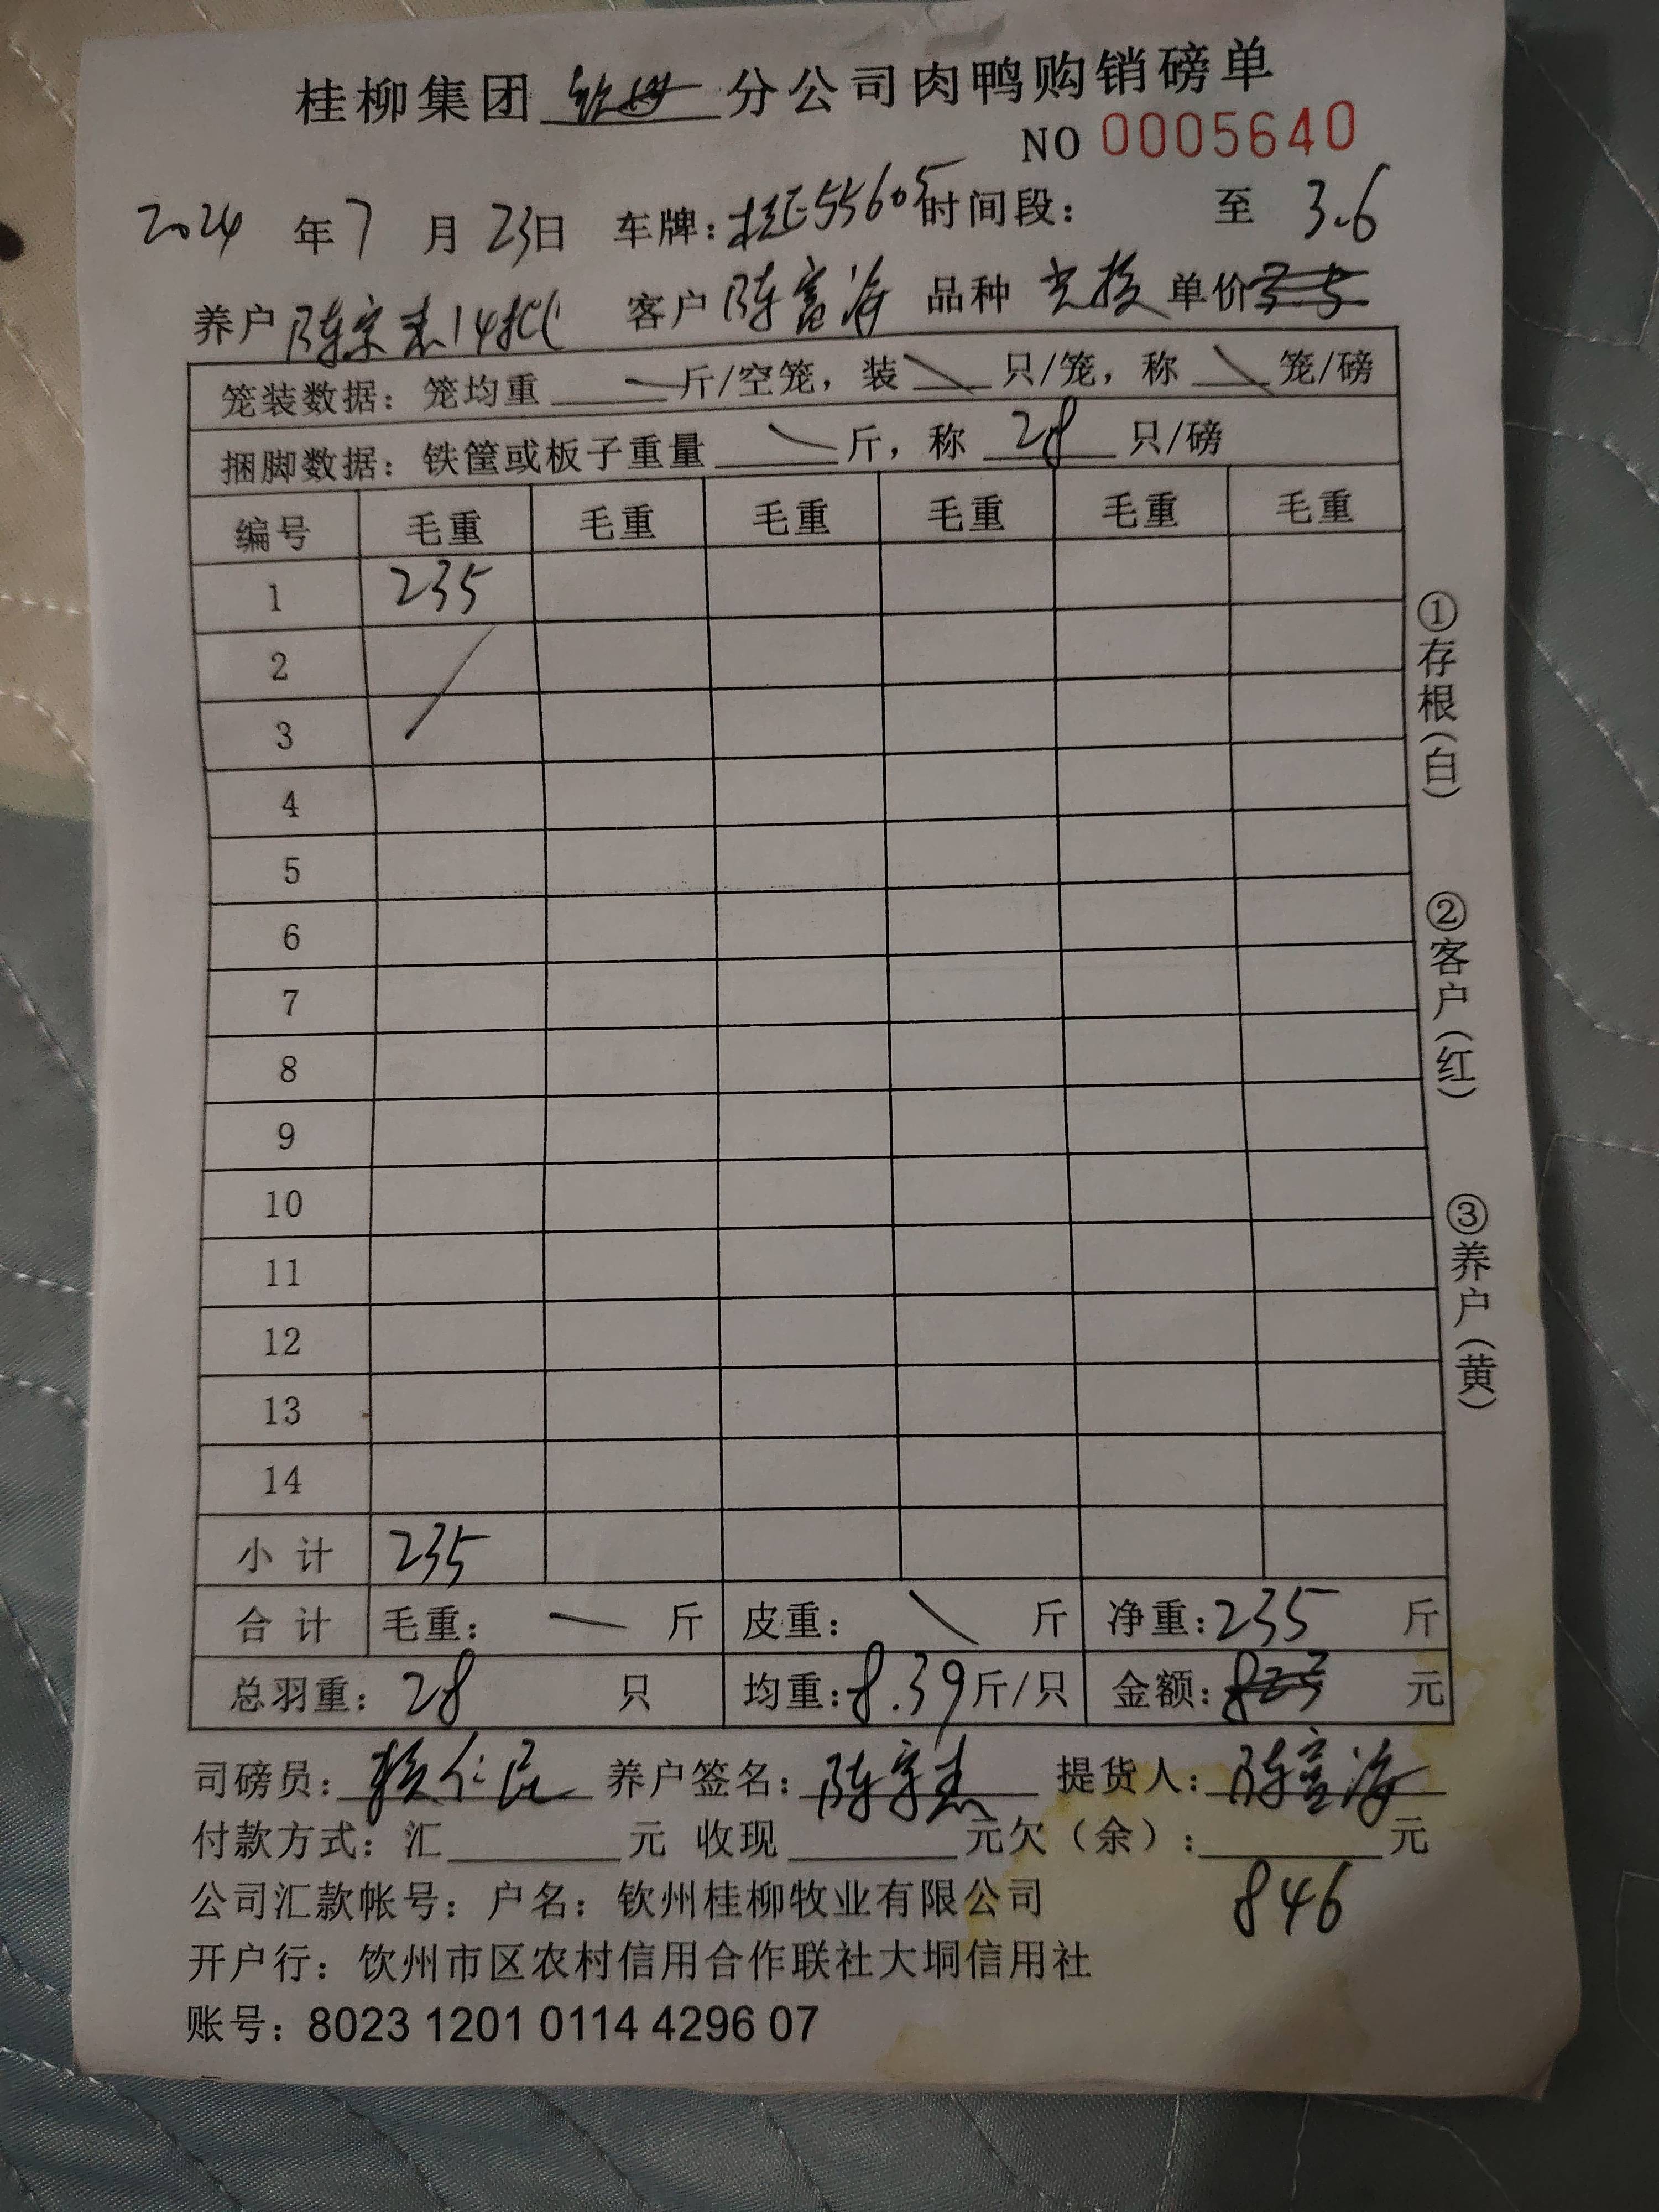 桂柳集团 钦州 分公司肉鸭购销磅单
NO 0005640
2024 年 7 月 23 日 车牌：桂E55605 时间段： 至 3.6
养户 陈宗杰14批 客户 陈富海 品种 单价 3.5
笼装数据：笼均重 斤/空笼，装 只/笼，称 笼/磅
捆脚数据：铁筐或板子重量 斤，称 28 只/磅
编号 毛重 毛重 毛重 毛重 毛重 毛重
1 235
2
3
4
5
6
7
8
9
10
11
12
13
14
小计 235
合计 毛重： 斤 皮重： 斤 净重：235 斤
总羽重：28 只 均重：8.39 斤/只 金额：823 元
司磅员：赖仁民 养户签名：陈宗杰 提货人：陈富海
付款方式：汇 元 收现 元欠（余）： 元
846
公司汇款帐号：户名：钦州桂柳牧业有限公司
开户行：钦州市区农村信用合作联社大垌信用社
账号：8023 1201 0114 4296 07
①存根（白）
②客户（红）
③养户（黄）